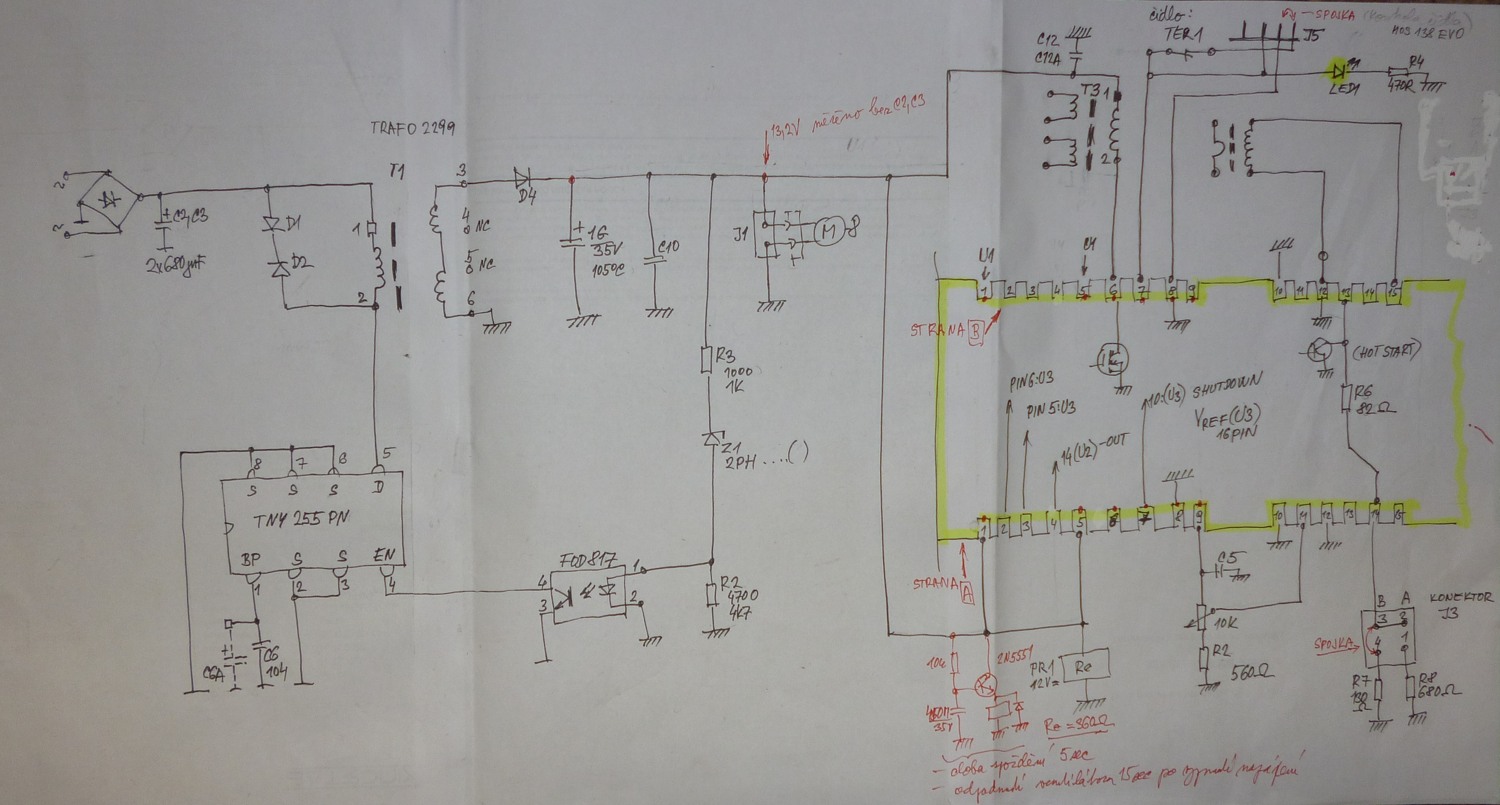 čidlo:
TER1
SPOJKA
J5
HOS 138 EVO
C12
C12A
T3
1
2
LED1
R4
470R
13,2V měřeno bez C2,C3
TRAFO 2299
T1
~
~
+ C2,C3
2x680µF
D1
D2
1
2
3
4
NC
5
NC
6
D4
+ 1G
35V
105°C
C10
J1
M
R3
1000
1K
Z1
2PH....()
U1
1 2 3 4 5 6 7 8 9
10 11 12 13 14 15
STRANA B
PIN6:U3
PIN 5:U3
14(U2)-OUT
10:(U3) SHUTDOWN
VREF(U3)
16PIN
(HOT START)
R6
82Ω
8 7 6 5
S S S D
TNY 255 PN
BP S S EN
1 2 3 4
C6A
C6
104
FOD817
4
3
1
2
R2
4700
4K7
1 2 3 4 5 6 7 8 9
10 11 12 13 14 15
STRANA A
C5
10K
R2
560Ω
B A
3 2
4 1
KONEKTOR
J3
SPOJKA
R7
R8
680Ω
10k
2N5551
35V
PR1
12V=
Re
Re = 360Ω
- doba zpoždění 5sec
- odpadnutí ventilátoru 15sec po vypnutí napájení